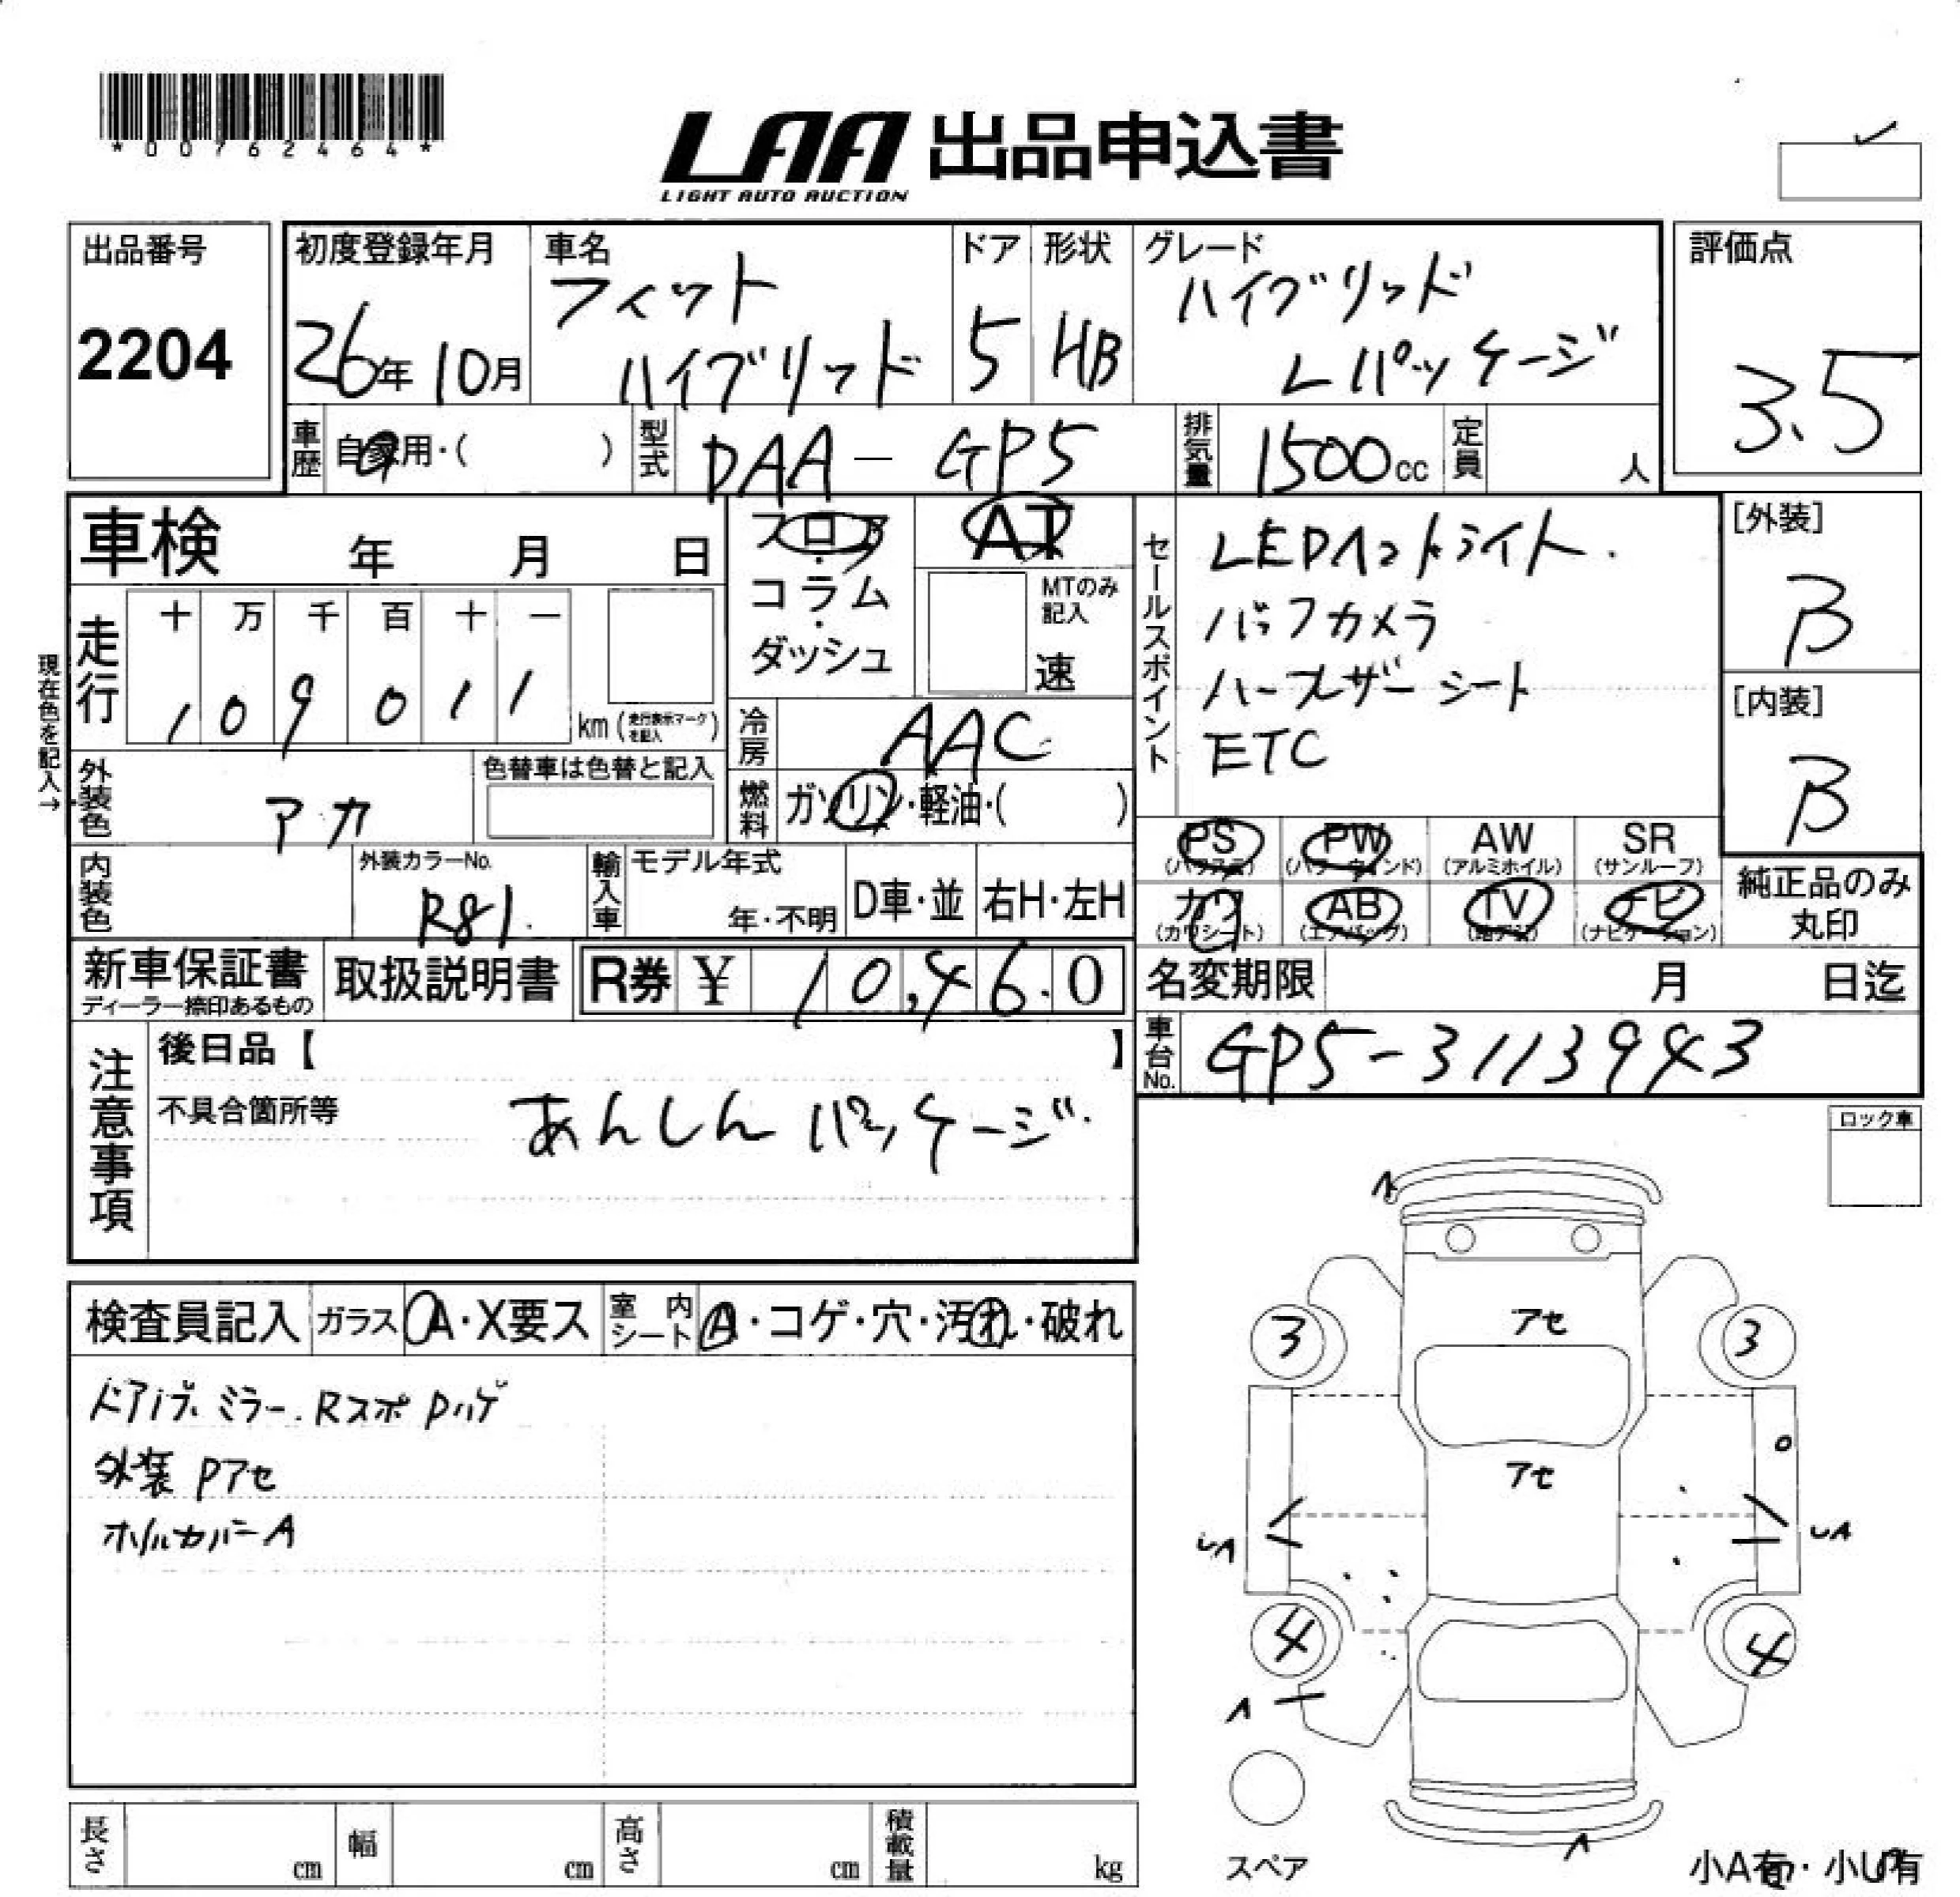 *00762464*
LAA 出品申込書
LIGHT AUTO AUCTION
出品番号
2204
初度登録年月
26年 10月
車名
フィット
ハイブリッド
ドア
5
形状
HB
グレード
ハイブリッド
Lパッケージ
評価点
3.5
車歴 自家用・( )
型式 DAA-GP5
排気量 1500cc
定員 人
車検 年 月 日
フロア・
コラム・
ダッシュ
AT
MTのみ
記入
速
セールスポイント
LEDヘッドライト.
バックカメラ
ハーフレザーシート
ETC
[外装]
B
[内装]
B
現在色を記入→
走行
十 万 千 百 十 一
1 0 9 0 1 1
km (走行表示マークを記入)
冷房 AAC
燃料 ガソリン・軽油・( )
外装色 アカ
色替車は色替と記入
内装色
外装カラーNo.
R81.
輸入車
モデル年式
年・不明
D車・並
右H・左H
PS
(パワステ)
PW
(パワーウィンド)
AW
(アルミホイル)
SR
(サンルーフ)
カワ
(カワシート)
AB
(エアバッグ)
TV
(地デジ)
ナビ
(ナビゲーション)
純正品のみ
丸印
新車保証書
ディーラー捺印あるもの
取扱説明書
R券 ¥ 10,460
名変期限 月 日迄
車台No. GP5-3113943
注意事項
後日品【 】
不具合箇所等
あんしんパッケージ.
ロック車
検査員記入
ガラス A・X要ス
室内シート A・コゲ・穴・汚れ・破れ
ドアノブ.ミラー.Rスポ Pハゲ
外装 Pアセ
ホイルカバーA
A
アセ
3
3
アセ
UA
UA
4
4
A
A
スペア
小A有・小U有
長さ cm
幅 cm
高さ cm
積載量 kg